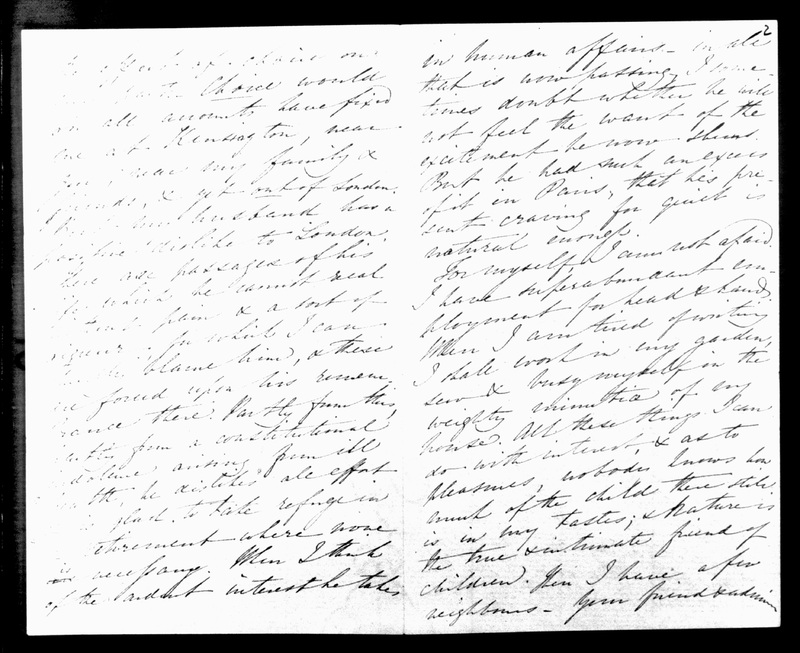 choice on
Choice would
on all accounts have fixed
me at Kensington, near
you, near my family &
friends, & yet out of London.
But my husband has a
positive dislike to London.
There are passages of his
life which he cannot recall
without pain & a sort of
in which I can
blame him, & these
are forced upon his remem
brance there. Partly from this,
partly from a constitutional
indolence arising from ill
health, he dislikes all effort
& is glad to take refuge in
retirement where none
is necessary. When I think
of the ardent interest he takes
2
in human affairs – in all
that is now passing, I some-
times doubt whether he will
not feel the want of the
excitement he now shuns.
But he had such an excess
of it in Paris, that his pre-
sent craving for quiet is
natural enough.
For myself, I am not afraid.
I have superabundant em-
ployment for head & hands.
When I am tired of writing
I shall work in my garden,
sew & busy myself in the
weighty minutiæ of my
house. All these things I can
do with interest, & as to
pleasures, nobody knows how
much of the child there still
is in my tastes; & Nature is
the true & intimate friend of
children. Then I have a few
neighbours – Your friend & admirer